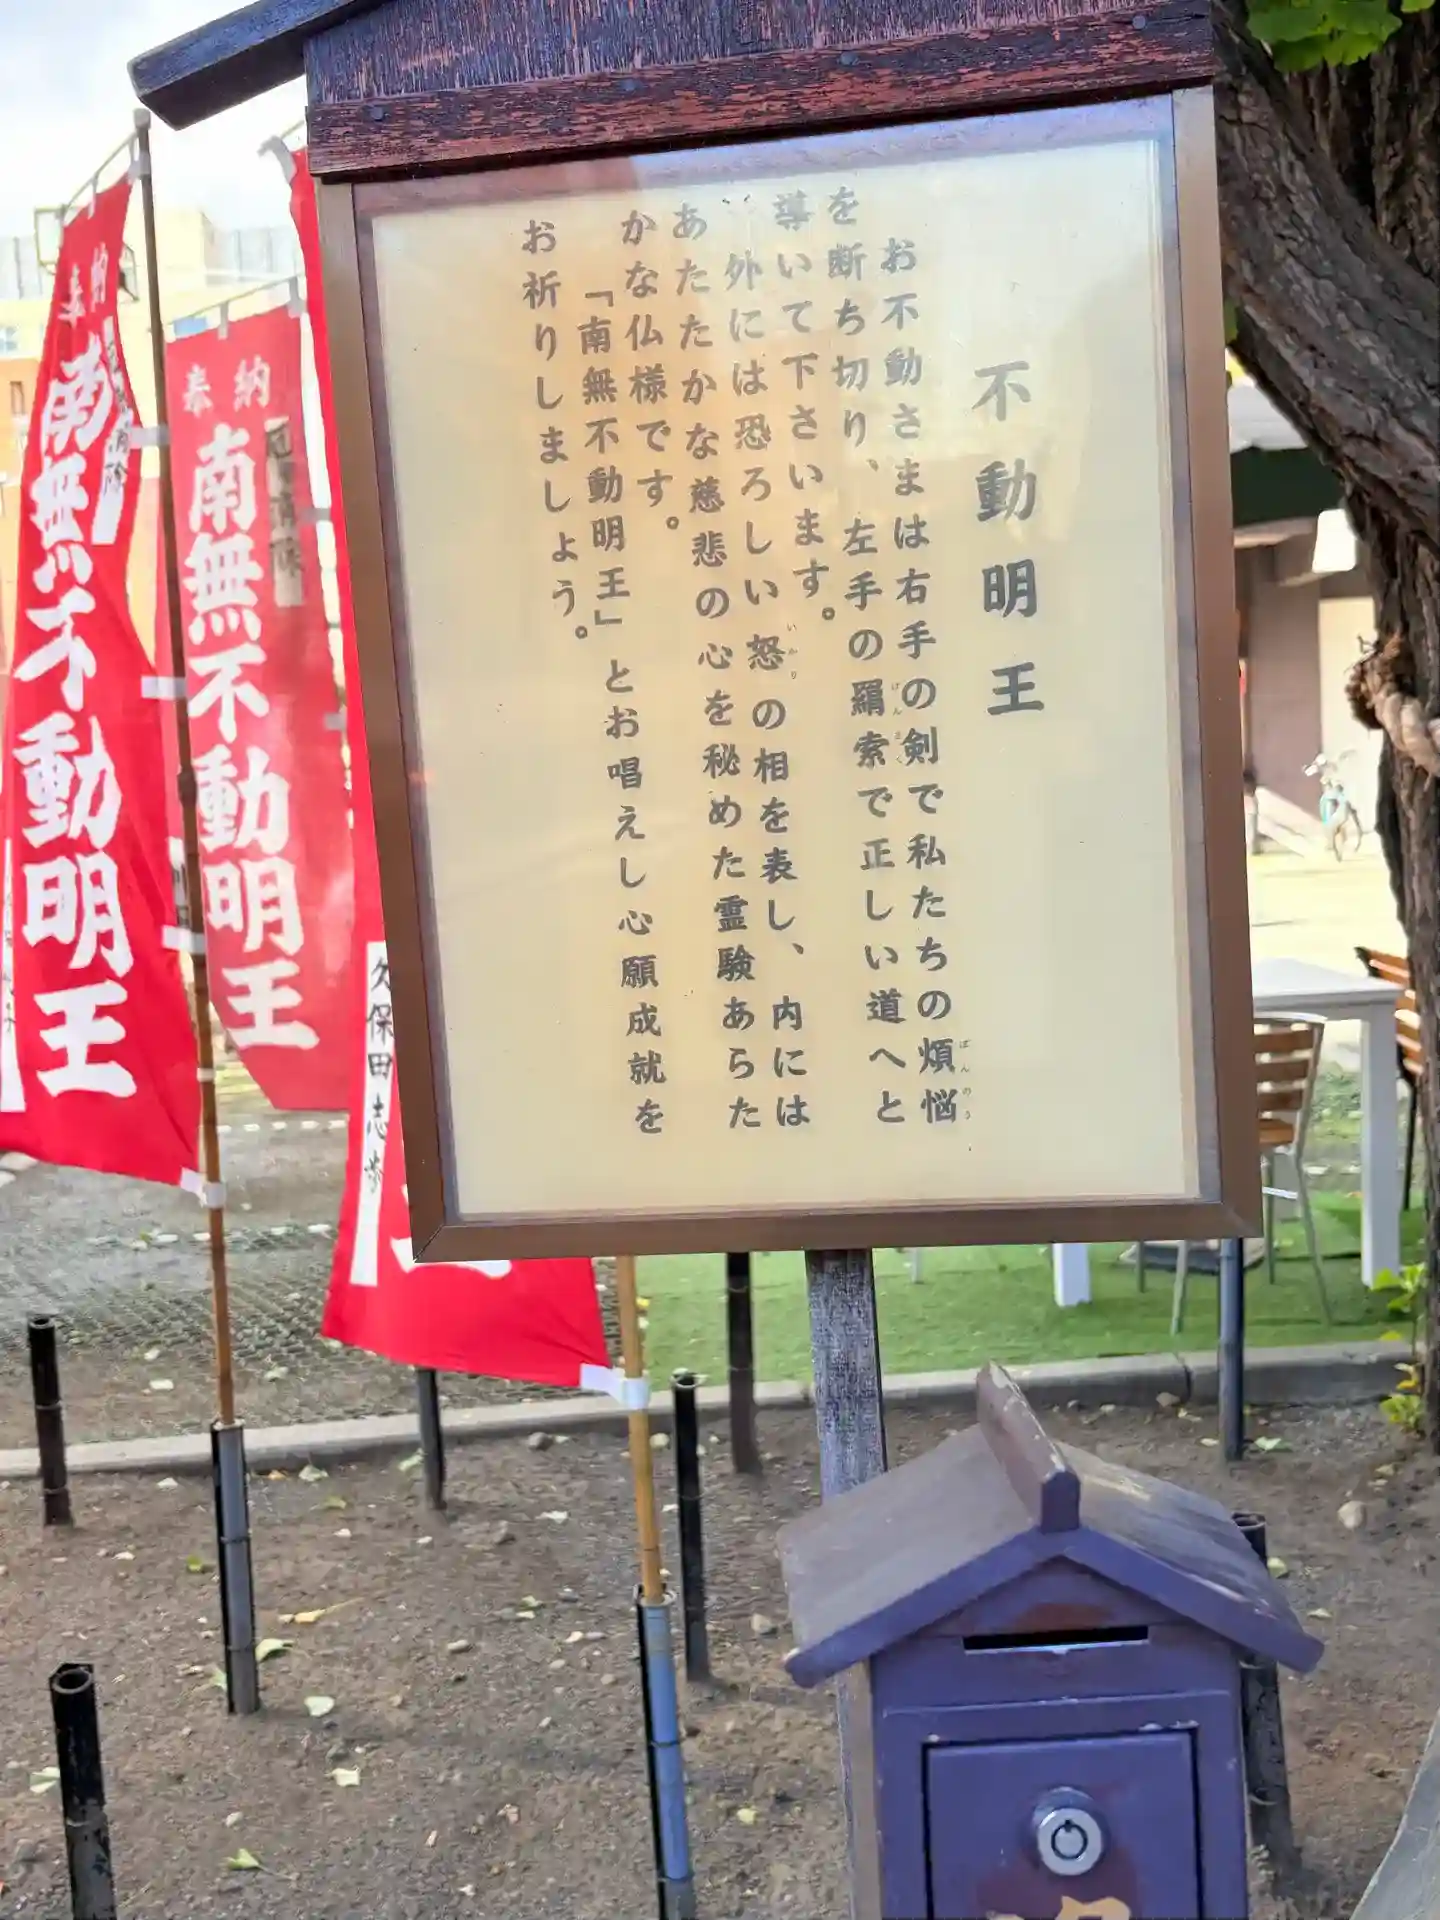 不動明王
お不動さまは右手の剣で私たちの煩悩
ぼんのう
を断ち切り、左手の羂索で正しい道へと
けんさく
導いて下さいます。
外には恐ろしい怒の相を表し、内には
いかり
あたたかな慈悲の心を秘めた霊験あらた
かな仏様です。
「南無不動明王」とお唱えし心願成就を
お祈りしましょう。
奉納
南無不動明王
奉納
南無不動明王
久保田志